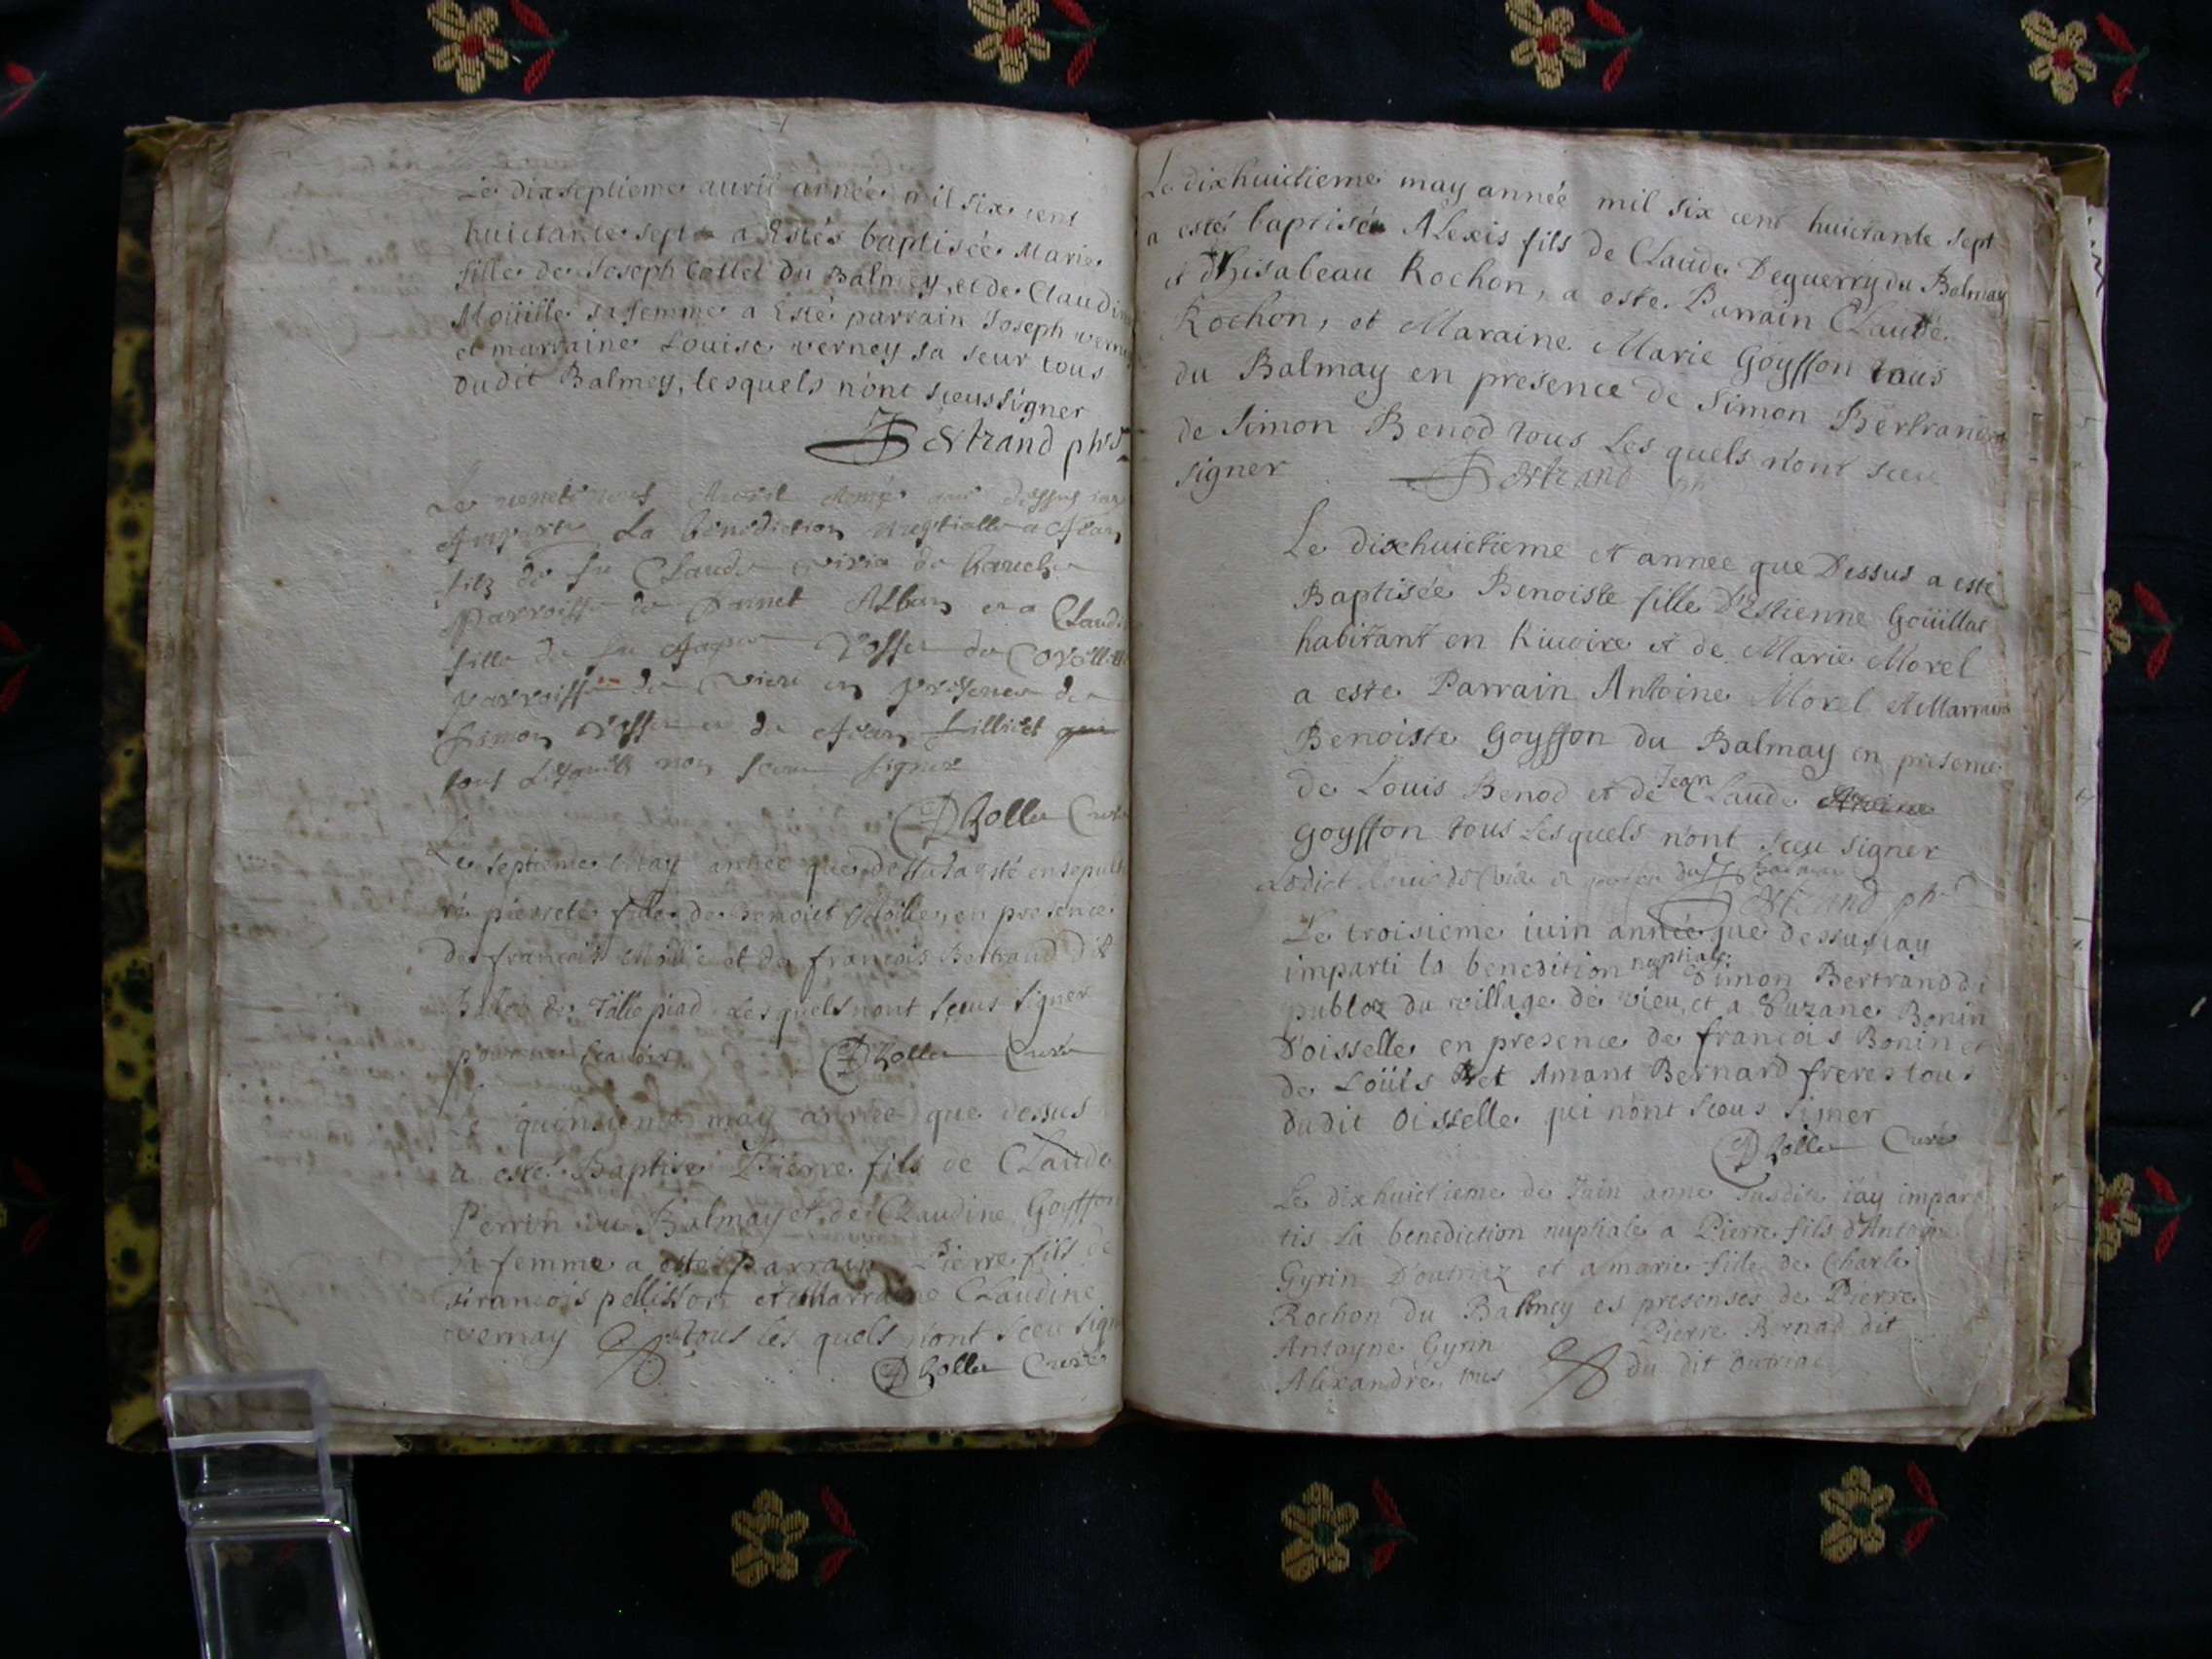 Le dixseptieme auril année mil six cent
huictante sept a Estés baptisée Marie
fille de Joseph Collet du Balmey et de Claudine
Moüille sa femme a Esté parrain Joseph verney
et marraine Louise verney sa seur tous
dudit Balmey, lesquels n'ont sceus signer
Bertrand phre
La benediction nuptialle a Jean
filz de fu Claude
parroisse de et a Claudi
fille de fu
parroisse de vieu en presence de
Simon et de Jean
tous lesquels non sceu signer
D Rolle Curé
Le septieme May année que dessus a esté ensepult
ré pierrete fille de benoist Moille, en presence
de francois Moille et de francois Bertrand dit
lesquels nont sceus signer
D Rolle Curé
Le quinsieme may année que dessus
a esté Baptisé Pierre fils de Claude
Perrin du Balmay et de Claudine Goyffon
sa femme a esté parrain Pierre fils de
francois pellisson et Marraine Claudine
vernay tous les quels n'ont sceu sign
D Rolle Curé
Le dixhuictieme may année mil six cent huictante sept
a esté baptisé Alexis fils de Claude Deguerry du Balmay
et d'hisabeau Rochon, a este Parrain Claude
Rochon, et Maraine Marie Goyffon tous
du Balmay en presence de Simon Bertrand et
de Simon Benod tous Lesquels n'ont sceu
signer Bertrand ph
Le dixhuictieme et annee que Dessus a este
Baptisée Benoiste fille D'Estienne Goüillac
habitant en Riuoire et de Marie Morel
a este Parrain Antoine Morel et Marraine
Benoiste Goyffon du Balmay en presence
de Louis Benod et de Jean Claude
Goyffon tous Lesquels n'ont sceu signer
Bertrand phr
Le troisieme iuin année que dessus iay
imparti la benedition nuptiale a Simon Bertrand di
publoz du village de vieu, et a Suzane Bonin
D'oisselle en presence de francois Bonin et
de Loüis et Amant Bernard freres tou
dudit Oisselle qui n'ont sceus signer
D Rolle Curé
Le dixhuictieme de Juin anne susdite iay impar
tis la benediction nuptiale a Pierre fils d'Antoine
Gyrin D'outriaz et a marie fille de Charle
Rochon du Balmey es presenses de Pierre
Antoyne Gyrin Pierre Bernad dit
Alexandre tous du dit outriaz